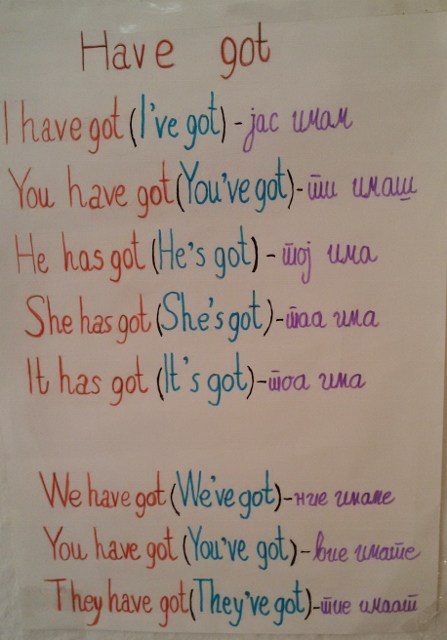 Have got
I have got (I've got) - јас имам
You have got (You've got) - ти имаш
He has got (He's got) - тој има
She has got (She's got) - таа има
It has got (It's got) - тоа има
We have got (We've got) - ние имаме
You have got (You've got) - вие имате
They have got (They've got) - тие имаат